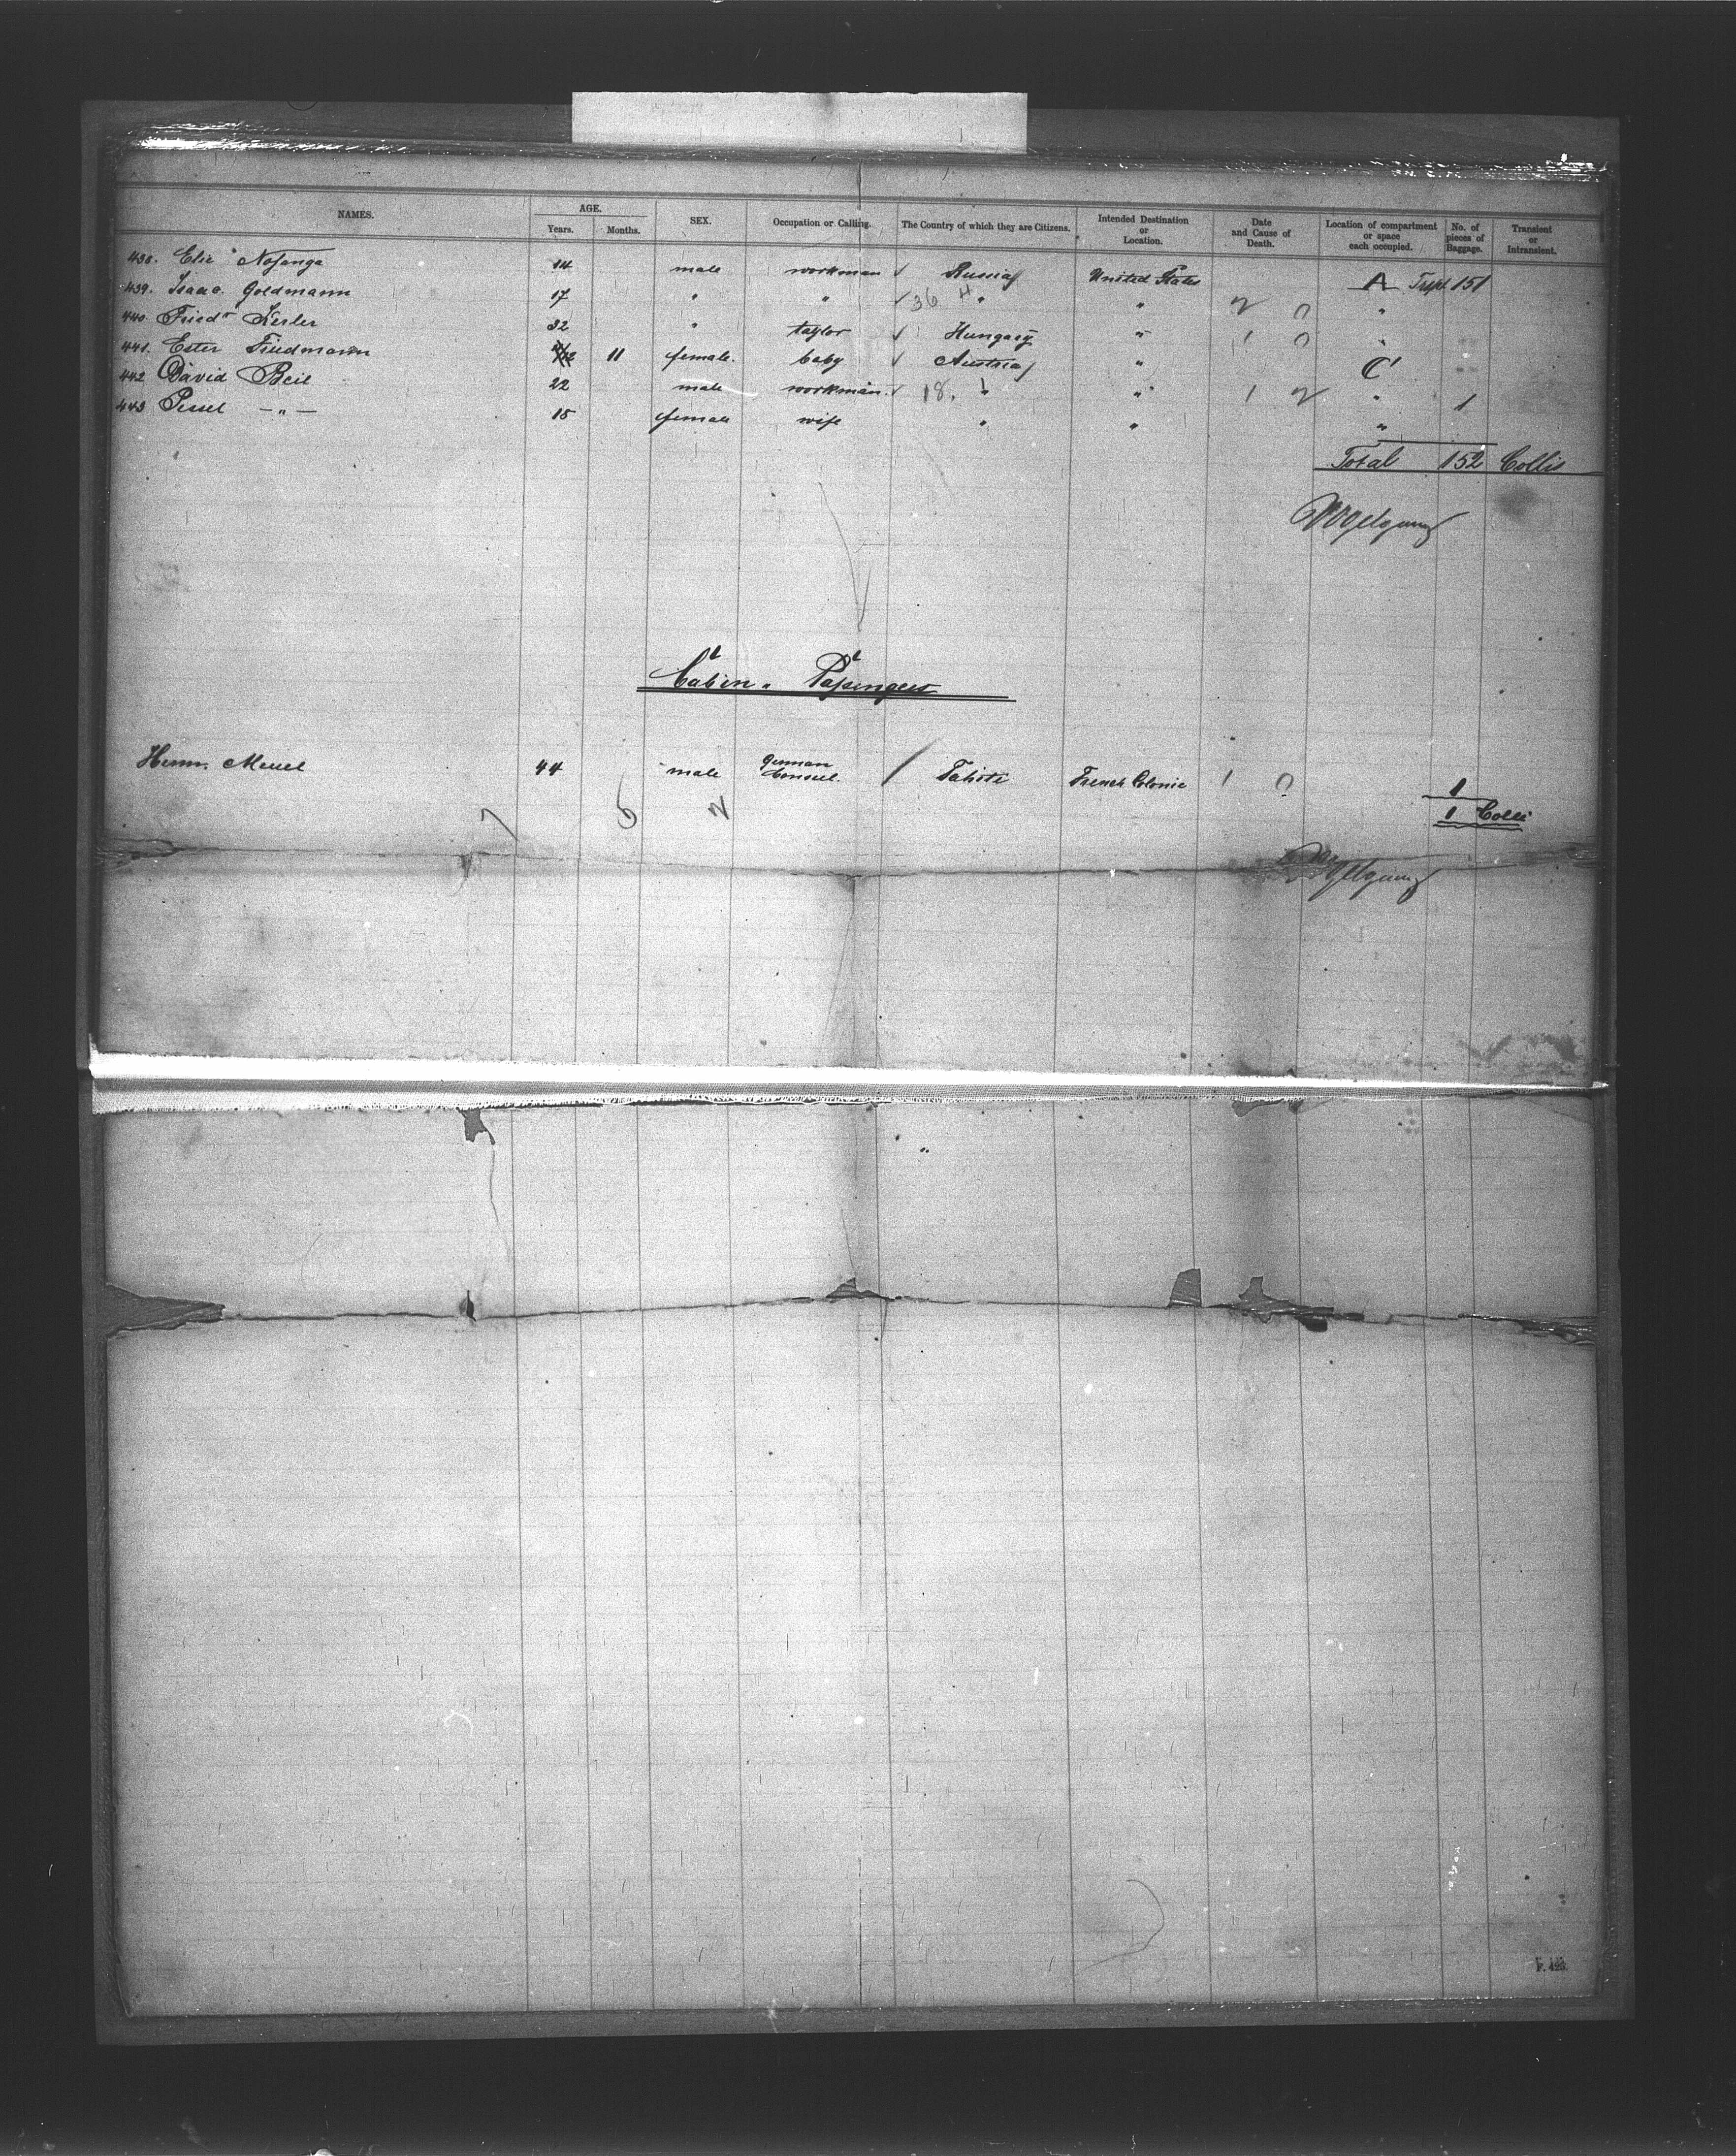 NAMES. AGE. Years. Months. SEX. Occupation or Calling. The Country of which they are Citizens. Intended Destination or Location. Date and Cause of Death. Location of compartment or space each occupied. No. of pieces of Baggage. Transient or Intransient.
438. Elie 14 male workman ✓ Russia United States A 151
439. Isaac Goldmann 17 " " ✓ 36 4 " " 2 0 "
440. Friedr Kesler 32 " taylor ✓ Hungary " 1 0 "
441. Ester Friedmann 11 female. baby ✓ Austria " C
442 David Beil 22 male workman. ✓ 18. " " 1 2 " 1
443 Pessel — " — 15 female wife " " "
Total 152 Collis
Cabin " Passengers
Herm. Meuel 44 male german Consul. / Tahiti French Colonie 1 0 1
1 Colli
7 5 2
F. 423.